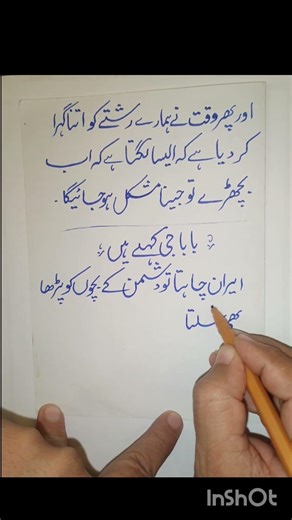 اور پھر وقت نے ہمارے رشتے کو اتنا گہرا
کر دیا ہے کہ ایسا لگتا ہے کہ اب
بچھڑے تو جینا مشکل ہو جائیگا ۔
بابا جی کہتے ہیں
ایران چاہتا تو دشمن کے بچوں کو پڑھا
بھی سکتا
InShOt